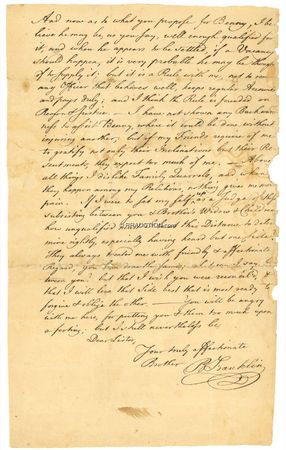 And now as to what you propose for Benny, I be
lieve he may be, as you say, well enough qualified for
it, and when he appears to be settled, if a Vacancy
should happen, it is very probable he may be thought
of to supply it; but it is a Rule with me, not to remove
any Officer that behaves well, keeps regular Accounts
and pays duly; and I think the Rule is founded on
Reason & Justice. — I have not shown any Backward
ness to assist Benny, where it could be done without
injuring another; but if my Friends require of me
to gratify not only their Inclinations but their Re
sentments, they expect too much of me. — Above
all things I dislike Family Quarrels, and when
they happen among my Relations, nothing gives me more
pain. If I were to set myself up as a Judge of those
subsisting between you & Brother's Widow & Children
how unqualified must I be at this Distance to deter
mine rightly, especially having heard but one side.
They always treated me with friendly & affectionate
Regard, you have done the same. What can I say be
tween you but that I wish you were reconciled, &
that I will love that Side best that is most ready to
forgive & oblige the other. — You will be angry
with me here, for putting you & them too much upon
a footing; but I shall nevertheless be
Dear Sister,
Your truly affectionate
Brother
B Franklin